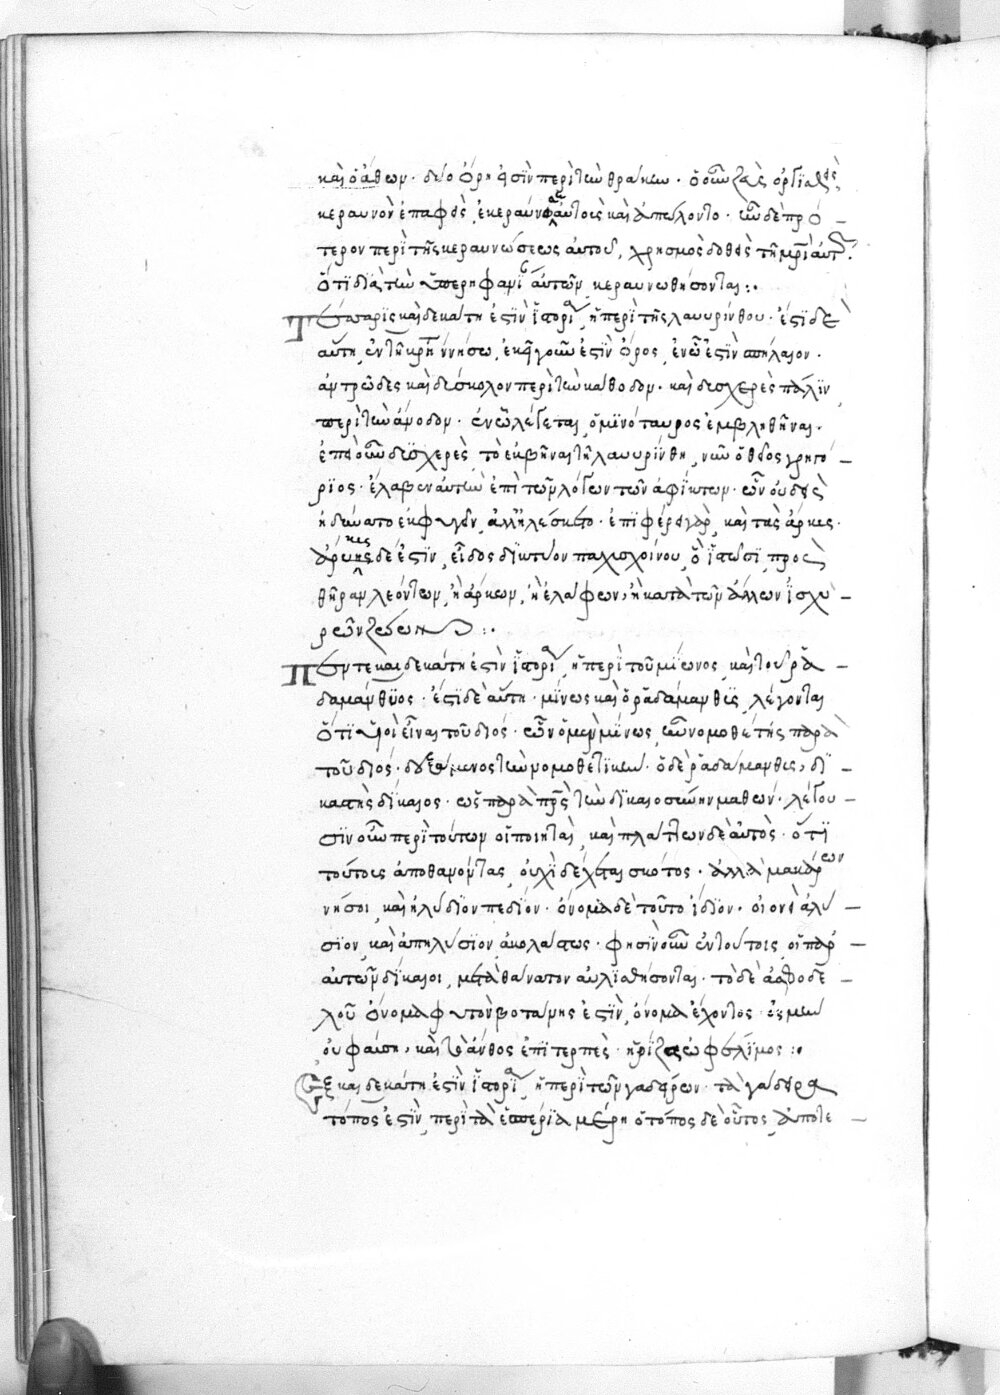 καὶ ὁ ἄθων· δύο ὄρη εἰσὶν περὶ τὴν θράκην· ὁ οὖν ζεὺς ὀργισθεὶς
κεραυνὸν ἐπαφεὶς, ἐκεραύνωσεν αὐτοὺς καὶ ἀπώλοντο· ἦν δὲ πρό
τερον περὶ τῆς κεραυνώσεως αὐτοῦ, χρησμὸς δοθεὶς τῆ μητρὶ αὐτοῦ.
ὅτι διὰ τὴν ὑπερηφανίαν αὐτῶν, κεραυνωθήσονται:·
Τεσσαρισκαιδεκάτη ἐστὶν ἱστορία, ἡ περὶ τῆς λαυυρίνθου· ἔστι δὲ
αὕτη, ἐν τῆ κρήτη νήσω, ἐκεῖ γοῦν ἐστὶν ὄρος, ἐν ὧ ἐστὶν σπήλαιον·
ἀντρῶδες καὶ δύσκολον περὶ τὴν κάθοδον· καὶ δυσχερὲς πάλιν
περὶ τὴν ἄνοδον· ἐν ὧ λέγεται, ὁ μινόταυρος ἐμβληθῆναι·
ἐπεὶ οὖν δυσχερὲς, τὸ ἐκβῆναι τῆ λαυυρίνθη, νῦν ὁ θεῖος γρηγό
ριος· ἔλαβεν αὐτὴν ἐπὶ τῶν λόγων τῶν ἀφύκτων· ὧν οὐδεὶς
ἠδύνατο ἐκφυγεῖν, ἀλλ' ἡλίσκετο· ἐπιφέρει γὰρ, καὶ τὰς ἄρκυς·
ἄρκυες δέ ἐστιν, εἶδος δικτύου παλισχοίνου, ὃ ἱστῶσι, πρὸς
θήραν λεόντων, ἢ ἄρκων, ἢ ἐλάφων, ἢ κατὰ τῶν ἄλλων ἰσχυ
ρῶν ζώων:·
Πεντεκαιδεκάτη ἐστὶν ἱστορία, ἡ περὶ τοῦ μίνωος, καὶ τοῦ ῥα
δαμάνθυος· ἔστι δὲ αὕτη· μίνως καὶ ὁ ῥαδάμανθυς, λέγονται
ὅτι υἱοὶ εἶναι τοῦ διός· ὧν ὁ μὲν μίνως, ἦν νομοθέτης παρὰ
τοῦ διός· δεξάμενος τὴν νομοθετικήν· ὁ δὲ ῥαδάμανθυς, δι
καστὴς δίκαιος· ὡς παρὰ πατρὸς τὴν δικαιοσύνην μαθών· λέγου
σιν οὖν περὶ τούτων οἱ ποιηταὶ, καὶ πλάτων δὲ αὐτὸς· ὅτι
τούτους ἀποθανόντας, οὐχὶ δέχεται σκότος· ἀλλὰ μακάρων
νῆσοι, καὶ ἠλύσιον πεδίον· ὄνομα δὲ τοῦτο ἴδιον· οἱονεὶ ἀλύ
σιον, καὶ ἀπηλύσιον, ἀκολάστως· φησὶν οὖν ἐν τούτοις, οἱ παρ'
αὐτῶν δίκαιοι, μετὰ θάνατον αὐλισθήσονται· τὸ δὲ ἀσφοδε
λοῦ ὄνομα φυτὸν βοτάνης ἐστὶν, ὄνομα ἔχοντος· ἔστι μὲν
οὐ φαύλη, καὶ τὸ ἄνθος ἐπιτερπὲς· ἡ ῥίζα ὠφελίμος:·
Ἑξκαιδεκάτη ἐστὶν ἱστορία, ἡ περὶ τῶν γαδείρων· τὰ γάδειρα
τόπος ἐστὶν, περὶ τὰ ἑσπέρια μέρη ὁ τόπος δὲ οὗτος, ἀπολε